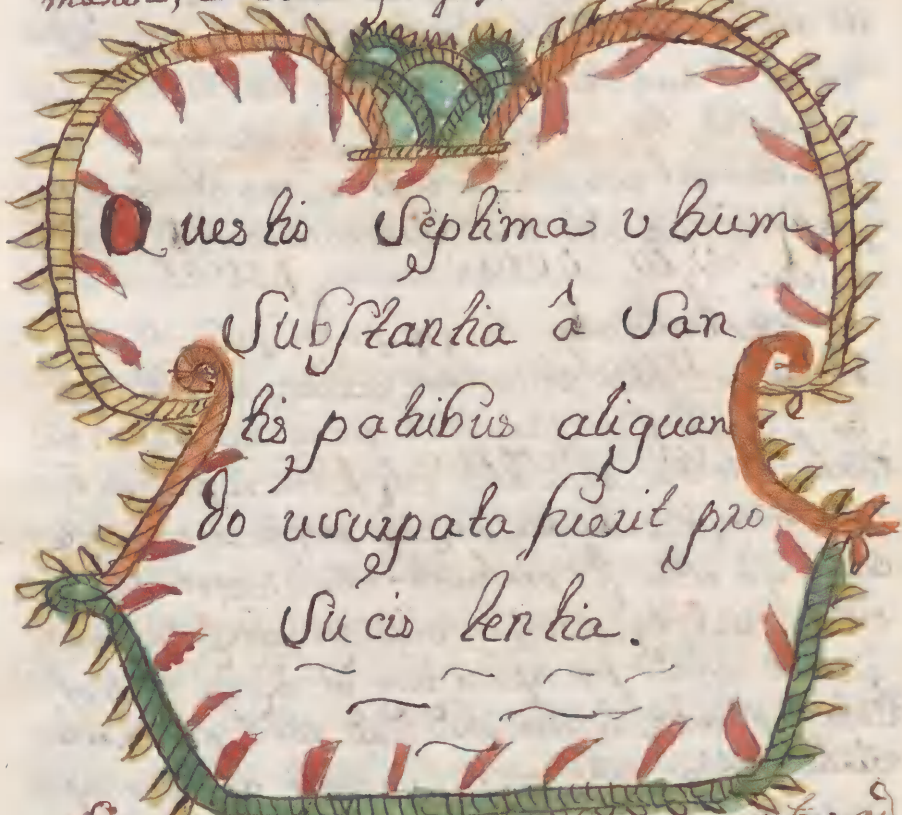 Questio Septima utrum
Substantia â San
tis patribus aliquan
do usurpata fuerit pro
Sucis tentia.